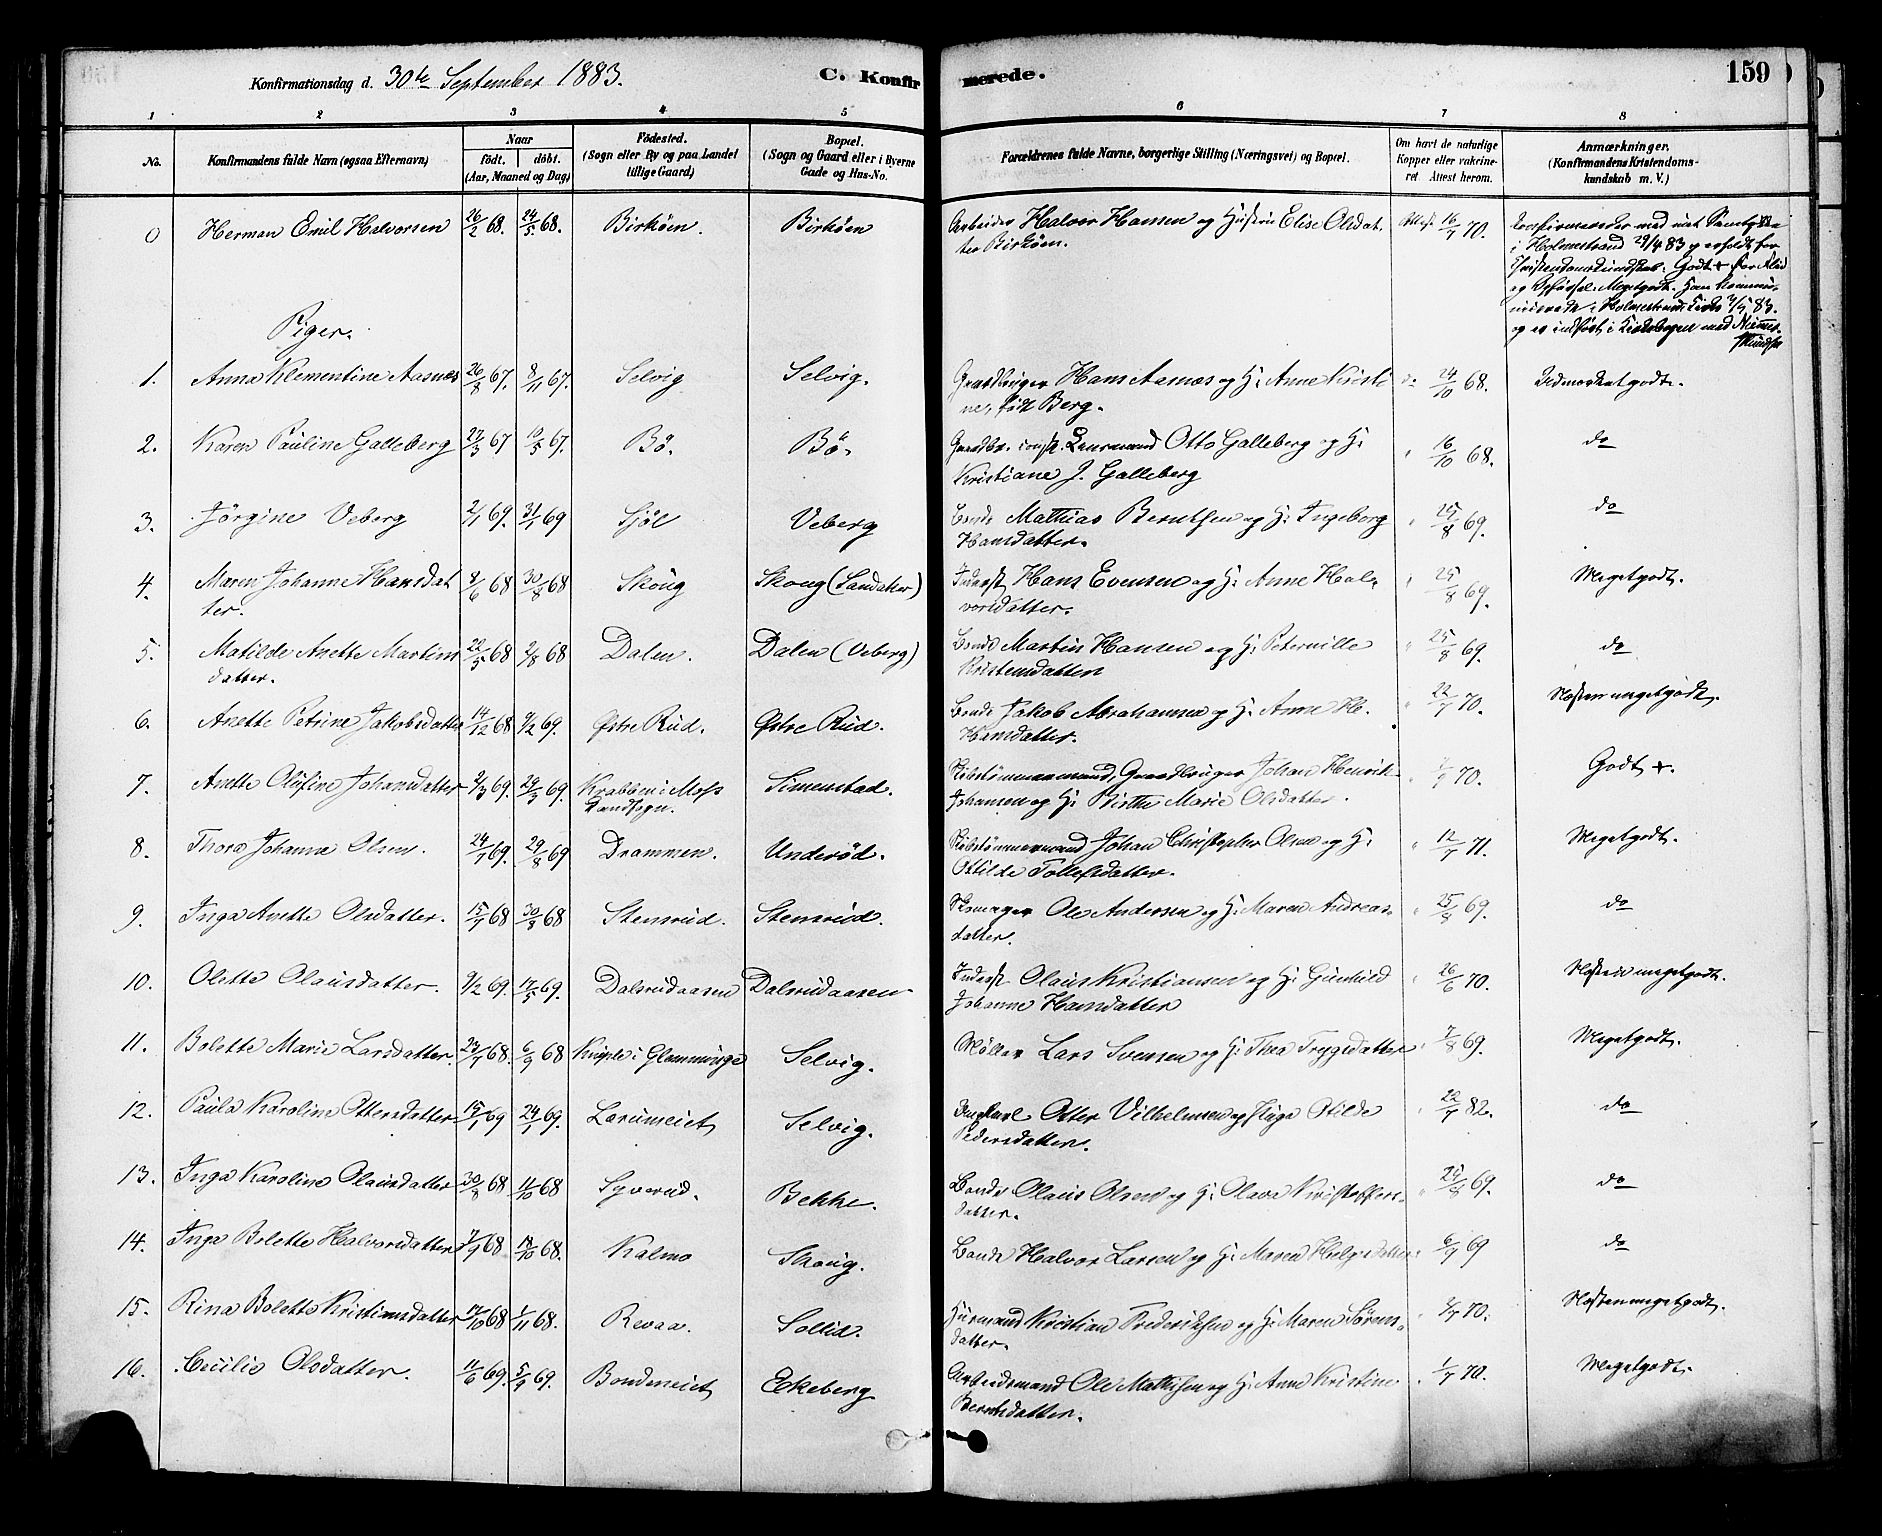 Konfirmationsdag d. 30te September 1883. C. Konfirmerede. 159
1 2 3 4 5 6 7 8
No. Konfirmandens fulde Navn (ogsaa Efternavn) Naar født. døbt. (Aar, Maaned og Dag) Fødested. (Sogn eller By og paa Landet tillige Gaard) Bopæl. (Sogn og Gaard eller i Byerne Gade og Hus-No. Forældrenes fulde Navne, borgerlige Stilling (Næringsvei) og Bopæl. Om havt de naturlige Kopper eller vakcineret Attest herom. Anmærkninger. (Konfirmandens Kristendomskundskab m. V.)
0 Herman Emil Halvorsen 26/2 68. 24/5 68. Birköen. Birköen Arbeider Halvor Hansen og Hustru Elise Olsdat-
ter Birköen. Attest 16/7 70.
i Holmestrand 29/4 83 og erholdt for
Kristendomskundskab: Godt + for Flid
og Opførsel: Megetgodt.
Piger.
1. Anna Klementine Aasnæs 26/8 67. 8/11 67. Selvig Selvig. Gaardbruger Hans Aasnæs og H: Anne Kristi-
ne, født Berg. 24/10 68. Udmærketgodt.
2. Karen Pauline Galleberg 27/3 67 10/5 67. Bö. Bö. Gaardbr. const. Lensmand Otto Galleberg og H:
Kristiane J. Galleberg 16/10 68. do
3. Jörgine Veberg 2/1 69. 31/1 69 Sjöl Veberg Bonde Mathias Berntsen og H: Ingeborg
Hansdatter. 25/8 69. do
4. Maren Johanne Hansdat
ter. 8/6 68 30/8 68 Skoug Skoug (Sandaker) Inderst Hans Evensen og H: Anne Hal-
vorsdatter. 25/8 69. Megetgodt.
5. Matilde Anette Martins
datter. 22/5 68 2/8 68 Dalen. Dalen (Veberg) Bonde Martin Hansen og H: Peternille
Kristensdatter 25/8 69. do
6. Anette Petrine Jakobsdatter 14/12 68 7/2 69. Østre Rud. Østre Rud. Bonde Jakob Abrahamsen og H: Anne H.
Hansdatter. 22/7 70. Næsten megetgodt.
7. Anette Olufine Johansdatter 2/3 69. 29/3 69. Krabben i Moss
Landsogn. Simenstad. Skibstömmermand, Gaardbruger Johan Henrik
Johansen og H: Birthe Marie Olsdatter. 70. Godt +.
8. Thora Johanne Olsen. 24/7 69. 29/8 69 Drammen. Underöd. Skibstömmermand Johan Christopher Olsen og H:
Ottilde Tollefsdatter. 12/7 71. Megetgodt.
9. Inga Anette Olsdatter. 15/7 68 30/8 68 Stensrud. Stensrud. Skomager Ole Andersen og H: Maren Andreas-
datter. 25/8 69. do
10. Olette Olausdatter. 9/2 69. 17/5 69. Dalsrudaasen Dalsrudaasen Inderst Olaus Kristiansen og H: Gunhild
Johanne Hansdatter 26/6 70. Næsten megetgodt.
11. Bolette Marie Larsdatter. 23/7 68. 6/9 68 i Glemminge Selvig. Möller Lars Svensen og H: Thea Trygsdatter 7/8 69. Megetgodt.
12. Paula Karoline Ottersdatter 15/1 69 24/1 69. Lerumeiet Selvig. Ungkarl Otter Vilhelmsen og Pige Otilde
Pedersdatter. 22/7 82. do
13. Inga Karoline Olausdatter 30/8 68 11/10 68 Syverud. Bekke. Bonde Olaus Olsen og H: Olava Kristoffers-
datter. 25/8 69. do
14. Inga Bolette Halvorsdatter 7/9 68 18/10 68. Kalmo Skoug. Bonde Halvor Larsen og H: Maren Helgesdatter 6/7 69 do
15. Rina Bolette Kristiansdatter 17/10 68 1/11 68. Revaa. Sollid. Husmand Kristian Frederiksen og H: Maren Sørens-
datter. 2/7 70. Næsten megetgodt.
16. Cecilie Olsdatter. 11/6 69. 5/9 69. Bondeneiet Eekeberg Arbeidsmand Ole Mathisen og H: Anne Kristine
Berntsdatter. 1/7 70. Megetgodt.